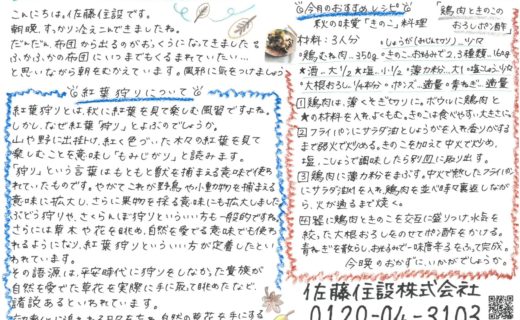 こんにちは。佐藤住設です。
朝晩、すっかり冷えこんできましたね。
だんだん、布団から出るのがおっくうになってきました…
ふかふかの布団にいつまでもくるまれていたい…
と思いながら朝をむかえています。風邪に気をつけましょう
紅葉狩りについて
紅葉狩りとは、秋に紅葉を見て楽しむ風習ですよね。
しかし、なぜ紅葉“狩り”とよぶのでしょうか。
山や野に出掛け、紅く色づいた木々の紅葉を見て
楽しむことを意味し「もみじがり」と読みます。
「狩り」という言葉はもともと獣を捕まえる意味で使わ
れていたものです。やがてこれが野鳥や小動物を捕まえる
意味に拡大し、さらに果物を採る意味にも拡大しました
ぶどう狩りや、さくらんぼ狩りといういい方も一般的ですね。
さらには草木や花を眺め、自然を愛でる意味でも使わ
れるようになり、紅葉狩りといういい方が定着したとい
われています。
その語源は、平安時代に狩りをしなかった貴族が
自然を愛でた草花を実際に手に取って眺めたなど、
諸説あるといわれています。
自然の草花を手にする
今月のおすすめレシピ
秋の味覚「きのこ」料理
「鶏肉ときのこの
おろしポン酢」
材料:3人分
・しょうが(みじん切り)…少々
・鶏むね肉…350g ・きのこ…お好みで2、3種類…160g
★酒…大1/2 ★塩…小1/2 ・薄力粉…大1 塩こしょう…少々
・大根おろし…1/4本分 ・ポンズ…適量 ・青ねぎ…適量
1 鶏肉は、薄くそぎ切りに。ボウルに鶏肉と
★の材料を入れ、よくもむ。きのこは食べやすい大きさに。
2 フライパンにサラダ油としょうがを入れ香りがする
まで弱火で炒める。きのこを加えて中火で炒め、
塩、こしょうで調味したら別皿に取り出す。
3 鶏肉に薄力粉をまぶす。中火で熱したフライパン
にサラダ油を入れ、鶏肉を並べ時々裏返しなが
ら、火が通るまで焼く。
4 器に鶏肉ときのこを交互に盛りつけ、水気を
絞った大根おろしをのせてポン酢をかける。
青ねぎを散らし、お好みで一味唐辛子をふって完成。
今晩のおかずに、いかがでしょうか。
佐藤住設株式会社
0120-04-3103